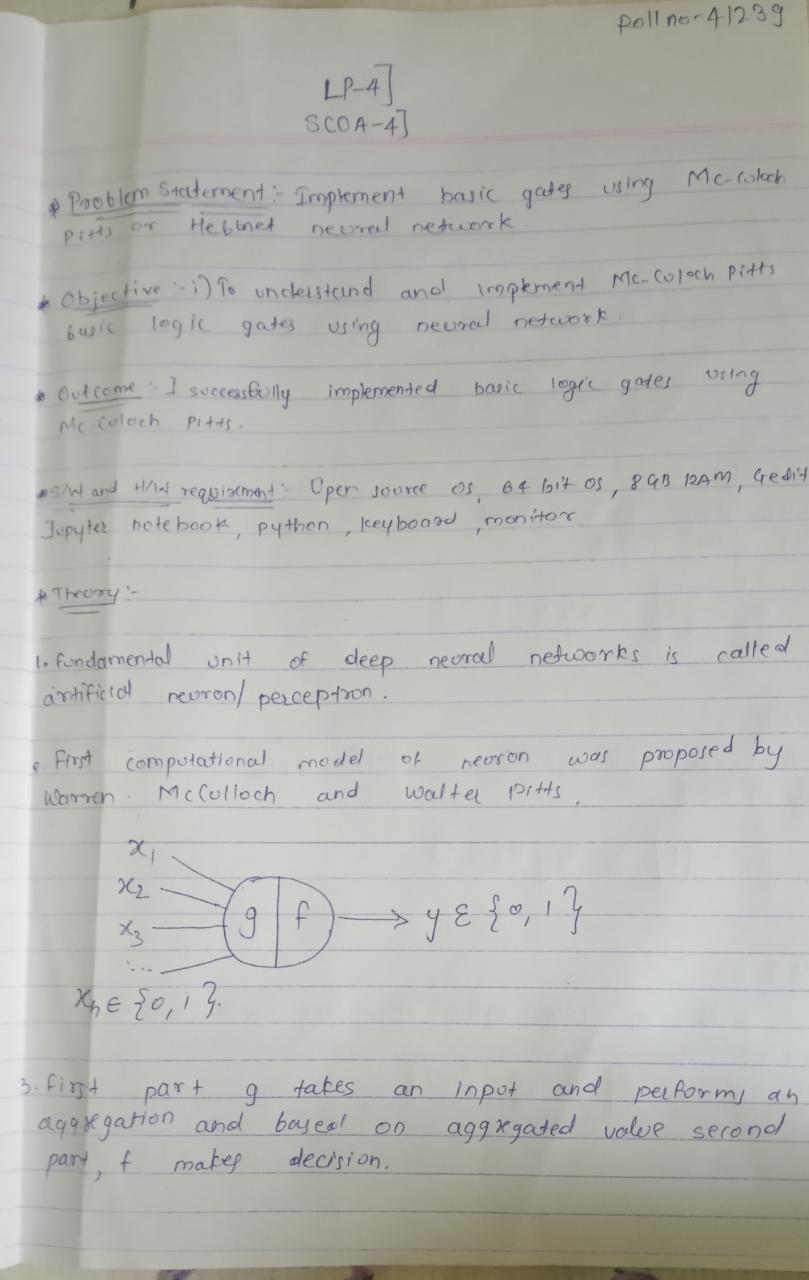 Roll no-41239
LP-4]
SCOA-4]
* Problem Statement :- Implement basic gates using Mc-Culoch
Pitts or Hebbnet neural network.
* Objective :- i) To understand and implement Mc-Coloch Pitts
basic logic gates using neural network.
* Outcome :- I successfully implemented basic logic gates using
Mc-Coloch Pitts.
* S/W and H/W requirement :- Open source OS, 64 bit OS, 8 GB RAM, Gedit
Jupyter notebook, python, keyboard, monitor
* Theory :-
1. Fundamental unit of deep neural networks is called
artificial neuron/ perceptron.
2. First computational model of neuron was proposed by
Warren. McCulloch and Walter Pitts.
x1
x2
x3
...
g f → y ε {0, 1}
xn ∈ {0, 1}.
3. First part g takes an input and performs an
aggregation and based on aggregated value second
part, f makes decision.